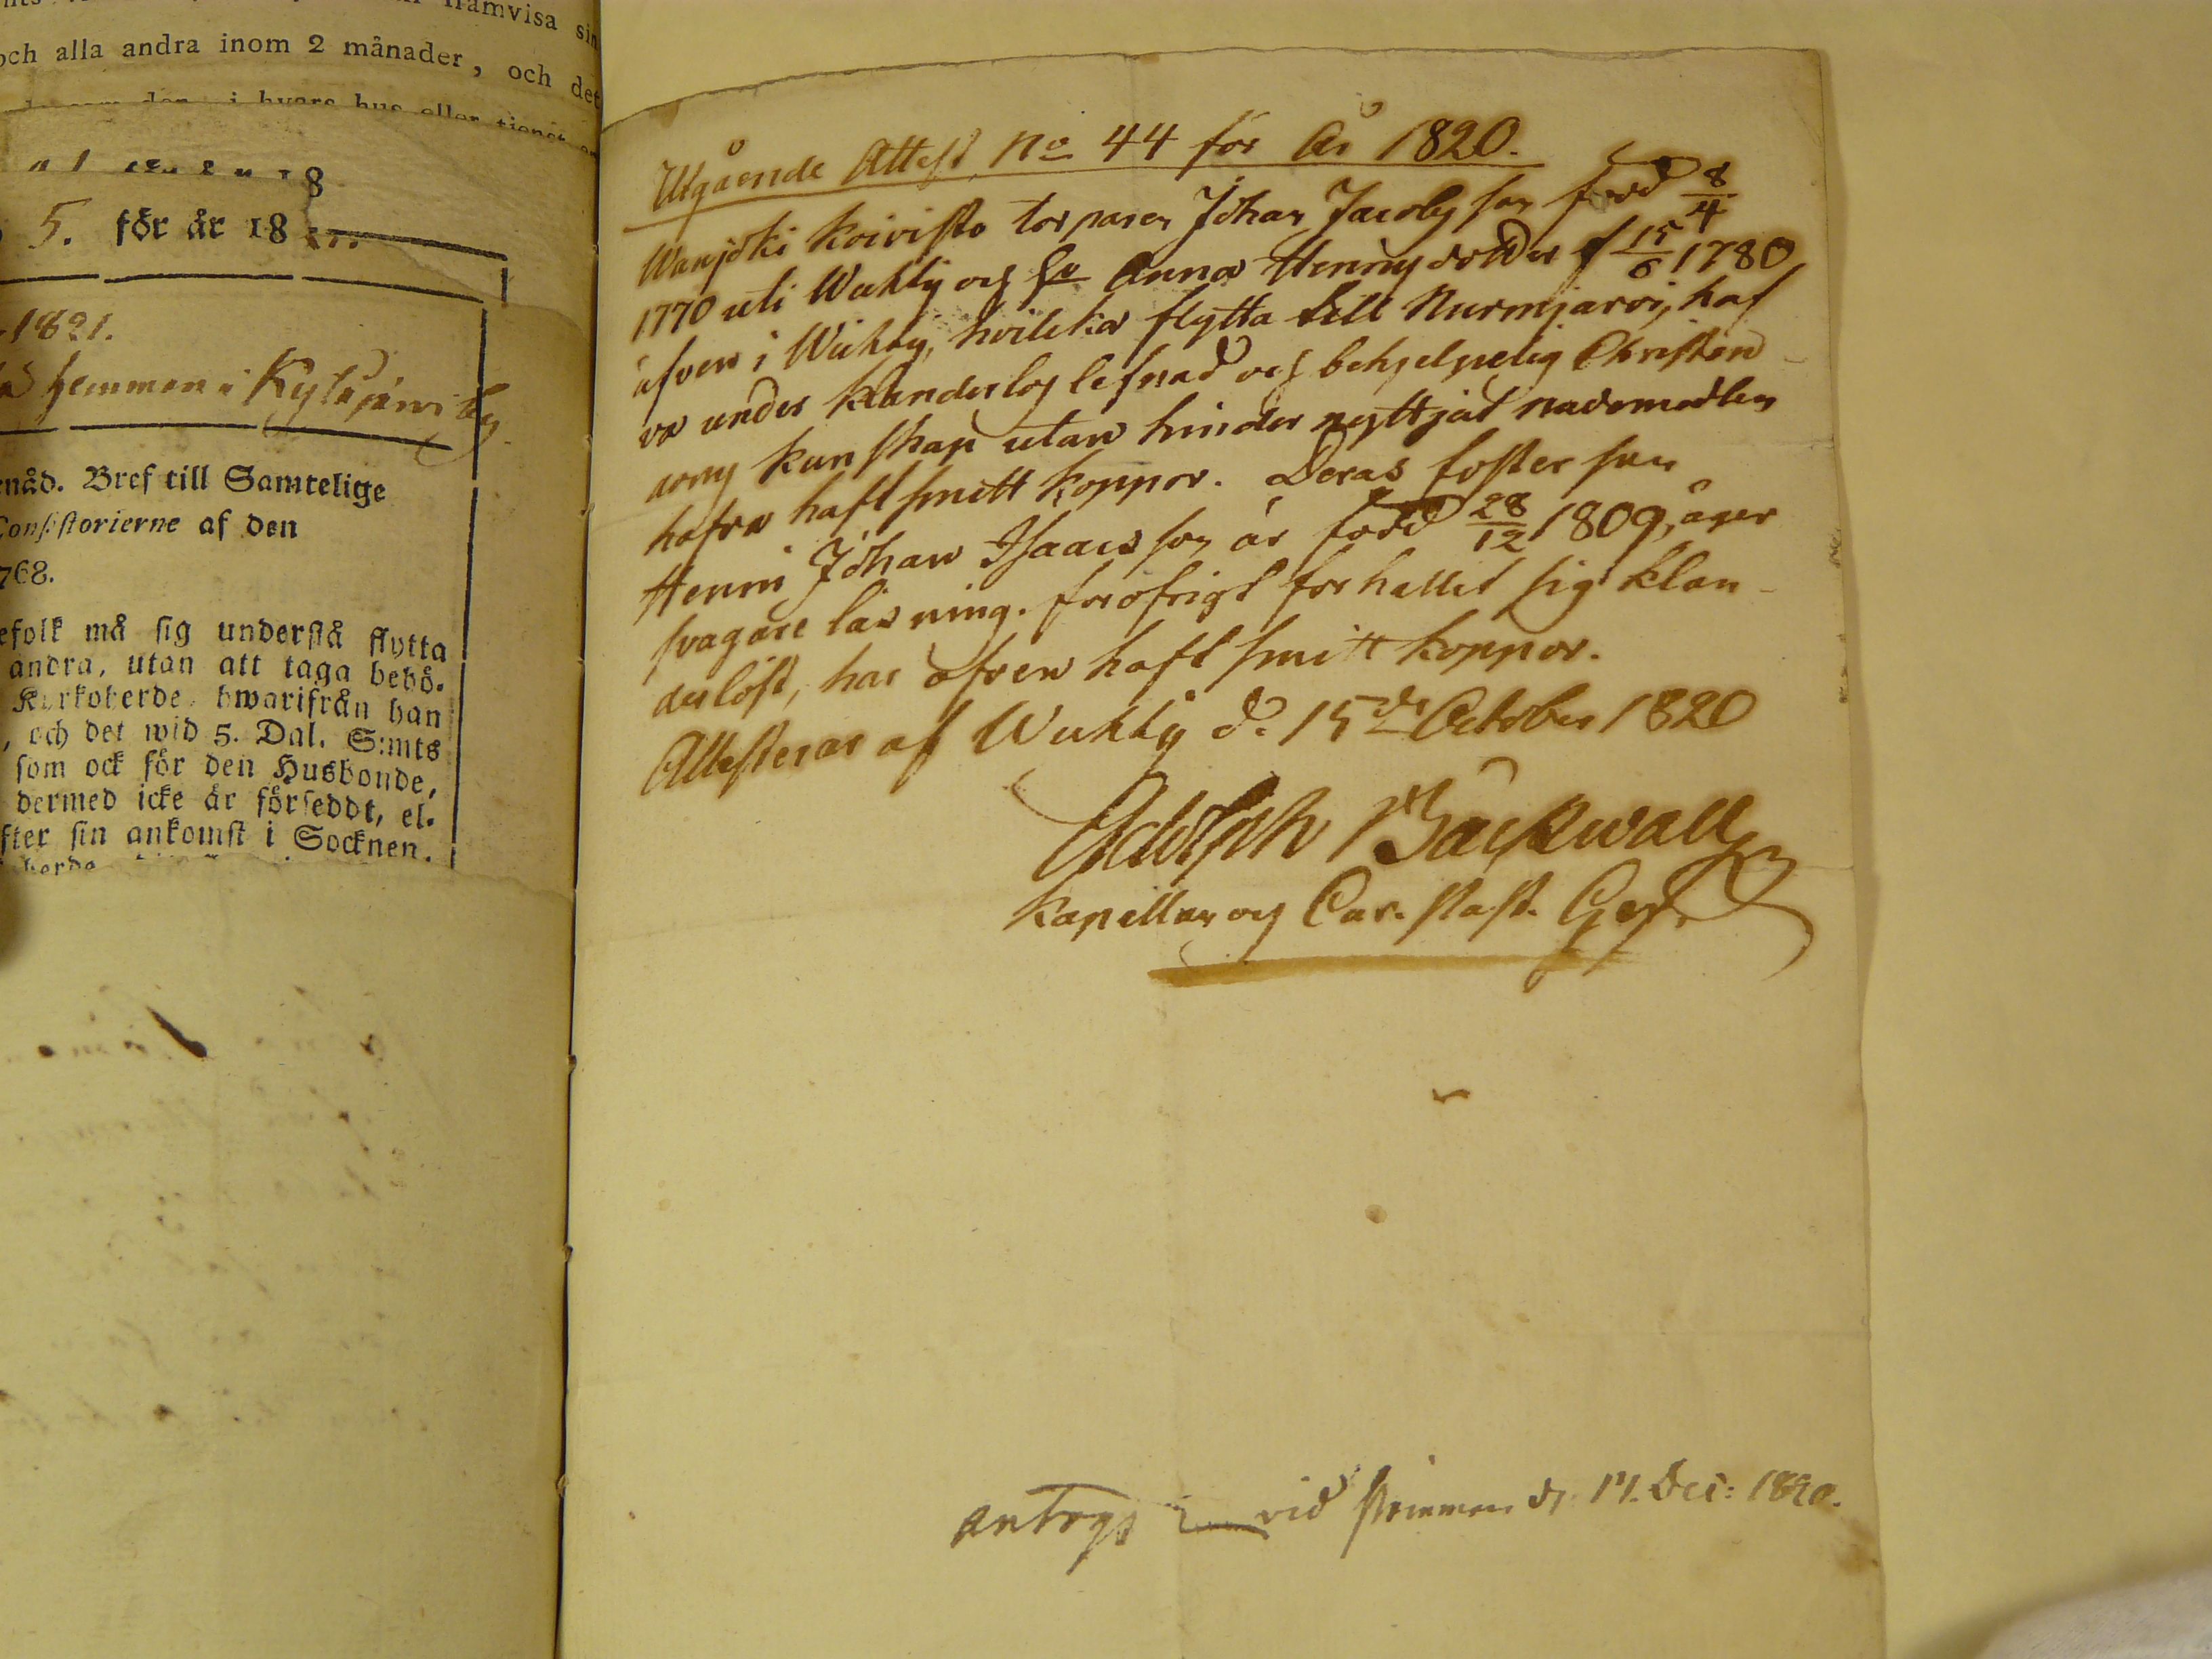 och alla andra inom 2 månader, och det
5. för år 18
1821.
hemman i Kytäjärvi by
Bref till Samtelige
Consistorierne af den
768.
efolk må sig understå flytta
andra, utan att taga behö-
Kyrkoherde, hwarifrån han
, och det wid 5. Dal. S:mts
som ock för den Husbonde,
dermed icke är förseddt, el-
fter sin ankomst i Socknen.
Utgående Attest No 44 för År 1820.
Wanjoki Koivisto torparen Johan Jacobsson född 8/4
1770 uti Wichty och hu Anna Henricsdotter f 15/6 1780
äfven i Wichty, hvilcka flytta till Nurmjärvi, haf
va under klanderlös lefnad och behjelpelig Christen-
doms kunskap utan hinder nyttjat nådemedlen
hafva haft smittkoppor. Deras foster son
Henric Johan Isaacsson är född 28/12 1809, äger
svagare läsning. föröfrigt förhållit sig klan-
derlöst, har äfven haft smittkoppor.
Attesteras af Wichty d. 15de October 1820
Adolph Bäckwall
Kapellan och Vav. Past. Gef.
antogs vid d. 17. Dec: 1820.